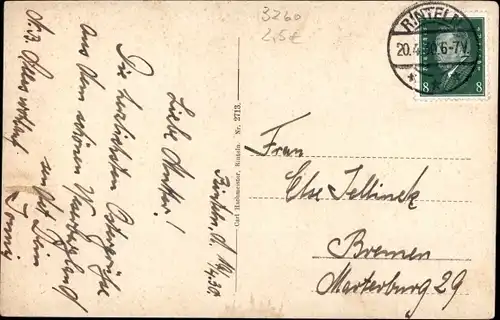 3260
2,5€
RINTELN
20.4.30.6-7V.
8 8
Rinteln, d. 19/4.30.
Liebe Mutter!
Die herzlichsten Ostergrüße
aus dem schönen Weserbergland
sendet Dein
Carl Hashmeister, Rinteln. Nr. 2713.
Frau
Else Jellinek
Bremen
Marterburg 29